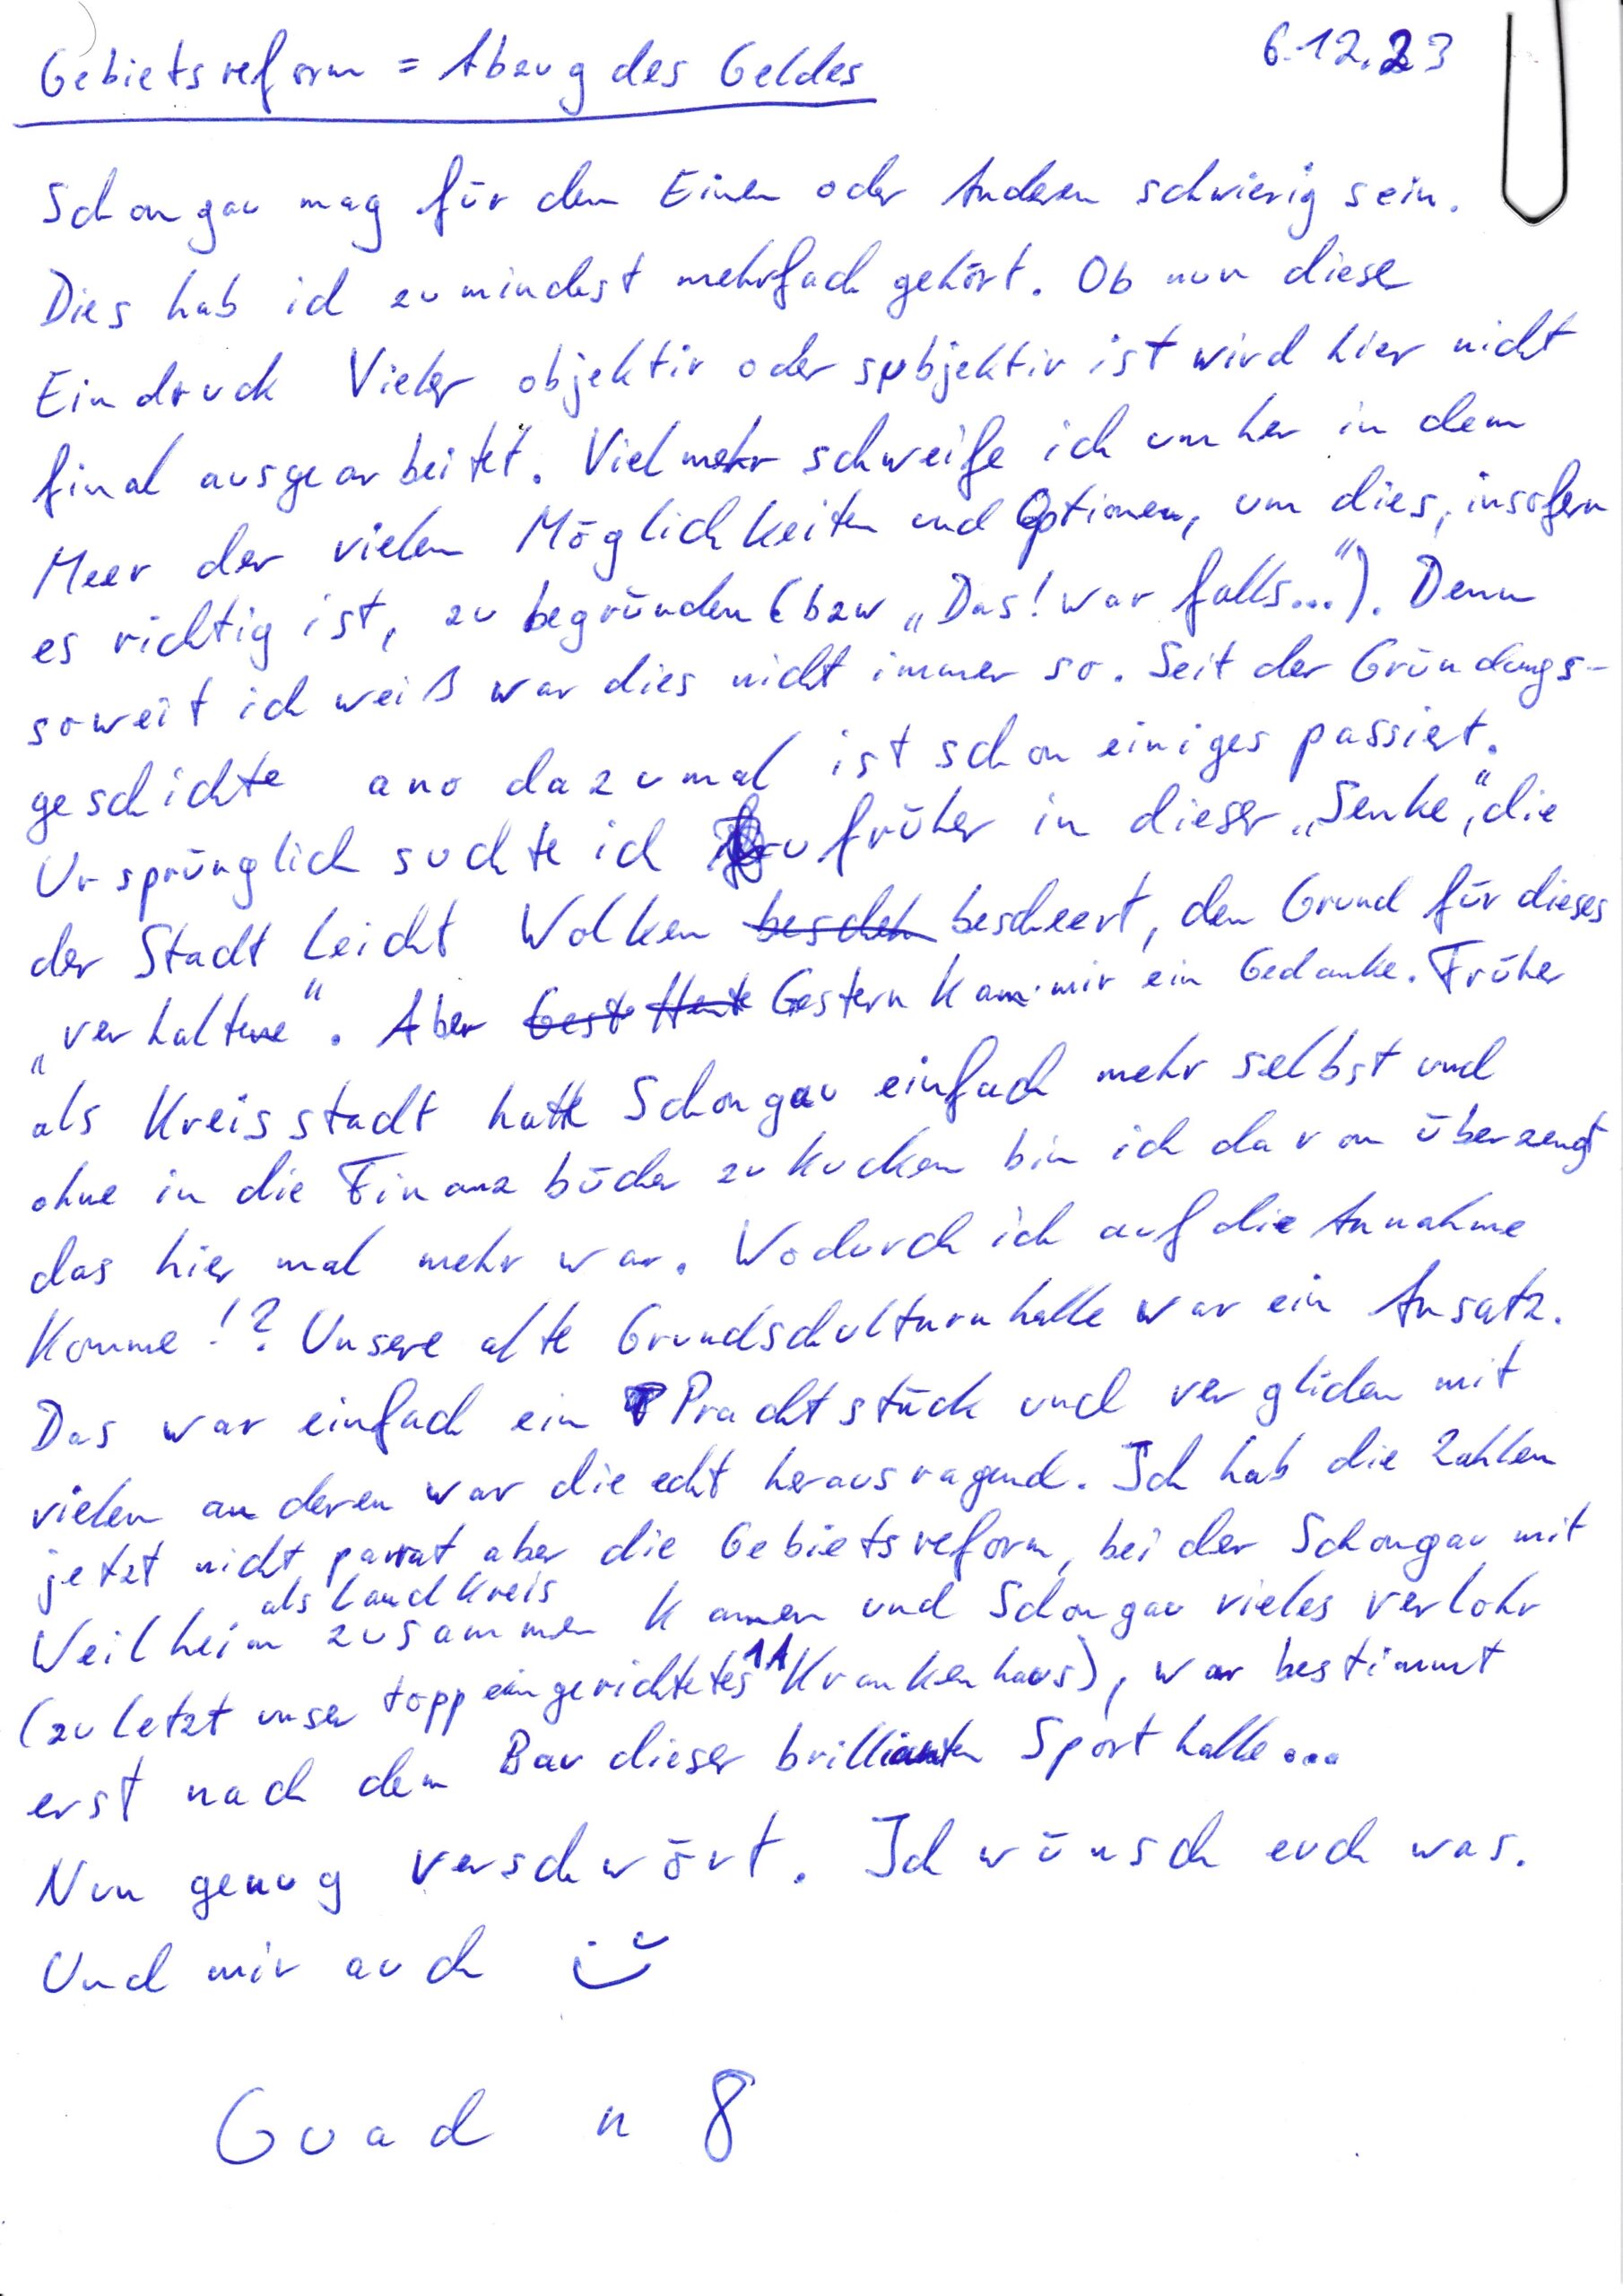 Gebietsreform = Abzug des Geldes
6.12.23
Schongau mag für den Einen oder Anderen schwierig sein.
Dies hab ich zumindest mehrfach gehört. Ob nun dieser
Eindruck Vieler objektiv oder subjektiv ist wird hier nicht
final ausgearbeitet. Vielmehr schweife ich umher in dem
Meer der vielen Möglichkeiten und Optionen, um dies, insofern
es richtig ist, zu begründen (bzw „Das! war falls..."). Denn
soweit ich weiß war dies nicht immer so. Seit der Gründungs-
geschichte ano dazumal ist schon einiges passiert.
Ursprünglich suchte ich früher in dieser „Senke", die
der Stadt leicht Wolken bescheert, den Grund für dieses
„verhaltene". Aber Gestern kam mir ein Gedanke. Früher
als Kreisstadt hatte Schongau einfach mehr selbst und
ohne in die Finanzbücher zu kucken bin ich davon überzeugt
das hier mal mehr war. Wodurch ich auf die Annahme
komme!? Unsere alte Grundschulturnhalle war ein Ansatz.
Das war einfach ein Prachtstück und verglichen mit
vielen anderen war die echt herausragend. Ich hab die Zahlen
jetzt nicht parrat aber die Gebietsreform, bei der Schongau mit
als Landkreis
Weilheim zusammen kamen und Schongau vieles verlohr
(zuletzt unser topp eingerichtetes 1A Krankenhaus), war bestimmt
erst nach dem Bau dieser brillianten Sporthalle...
Nun genug verschwört. Ich wünsch euch was.
Und mir auch
Guad n 8